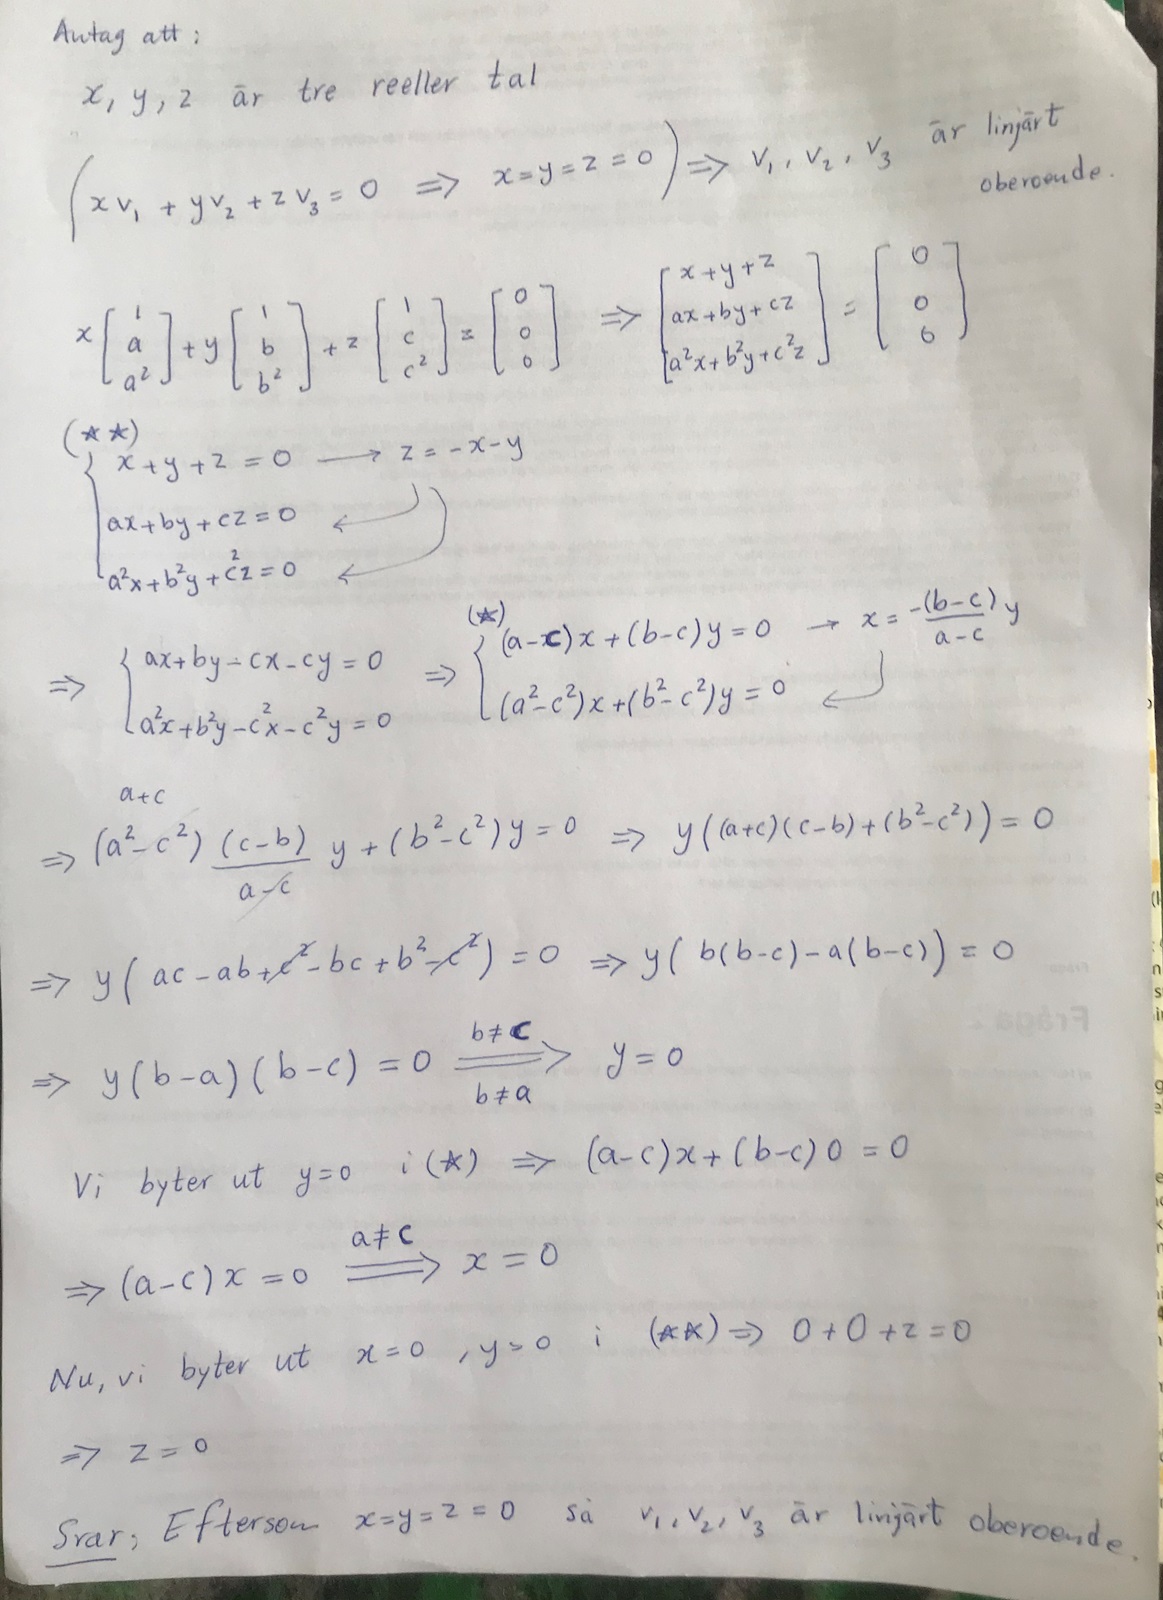 Antag att:
x, y, z är tre reeller tal
(x v₁ + y v₂ + z v₃ = 0 ⇒ x=y=z=0) ⇒ v₁, v₂, v₃ är linjärt
oberoende.
x [1 a a²] + y [1 b b²] + z [1 c c²] = [0 0 0] ⇒ [x+y+z ax+by+cz a²x+b²y+c²z] = [0 0 0]
(**)
x+y+z=0 → z=-x-y
ax+by+cz=0
a²x+b²y+c²z=0
(*)
⇒ { ax+by-cx-cy=0 ⇒ { (a-c)x+(b-c)y=0 → x = -(b-c)/(a-c) y
a²x+b²y-c²x-c²y=0 (a²-c²)x+(b²-c²)y=0
a+c
⇒ (a²-c²) (c-b)/(a-c) y+(b²-c²)y=0 ⇒ y((a+c)(c-b)+(b²-c²))=0
⇒ y(ac-ab+c²-bc+b²-c²)=0 ⇒ y(b(b-c)-a(b-c))=0
b≠c
⇒ y(b-a)(b-c)=0 ⇒ y=0
b≠a
Vi byter ut y=0 i (*) ⇒ (a-c)x+(b-c)0=0
a≠c
⇒ (a-c)x=0 ⇒ x=0
Nu, vi byter ut x=0, y=0 i (**) ⇒ 0+0+z=0
⇒ z=0
Svar; Eftersom x=y=z=0 så v₁, v₂, v₃ är linjärt oberoende.